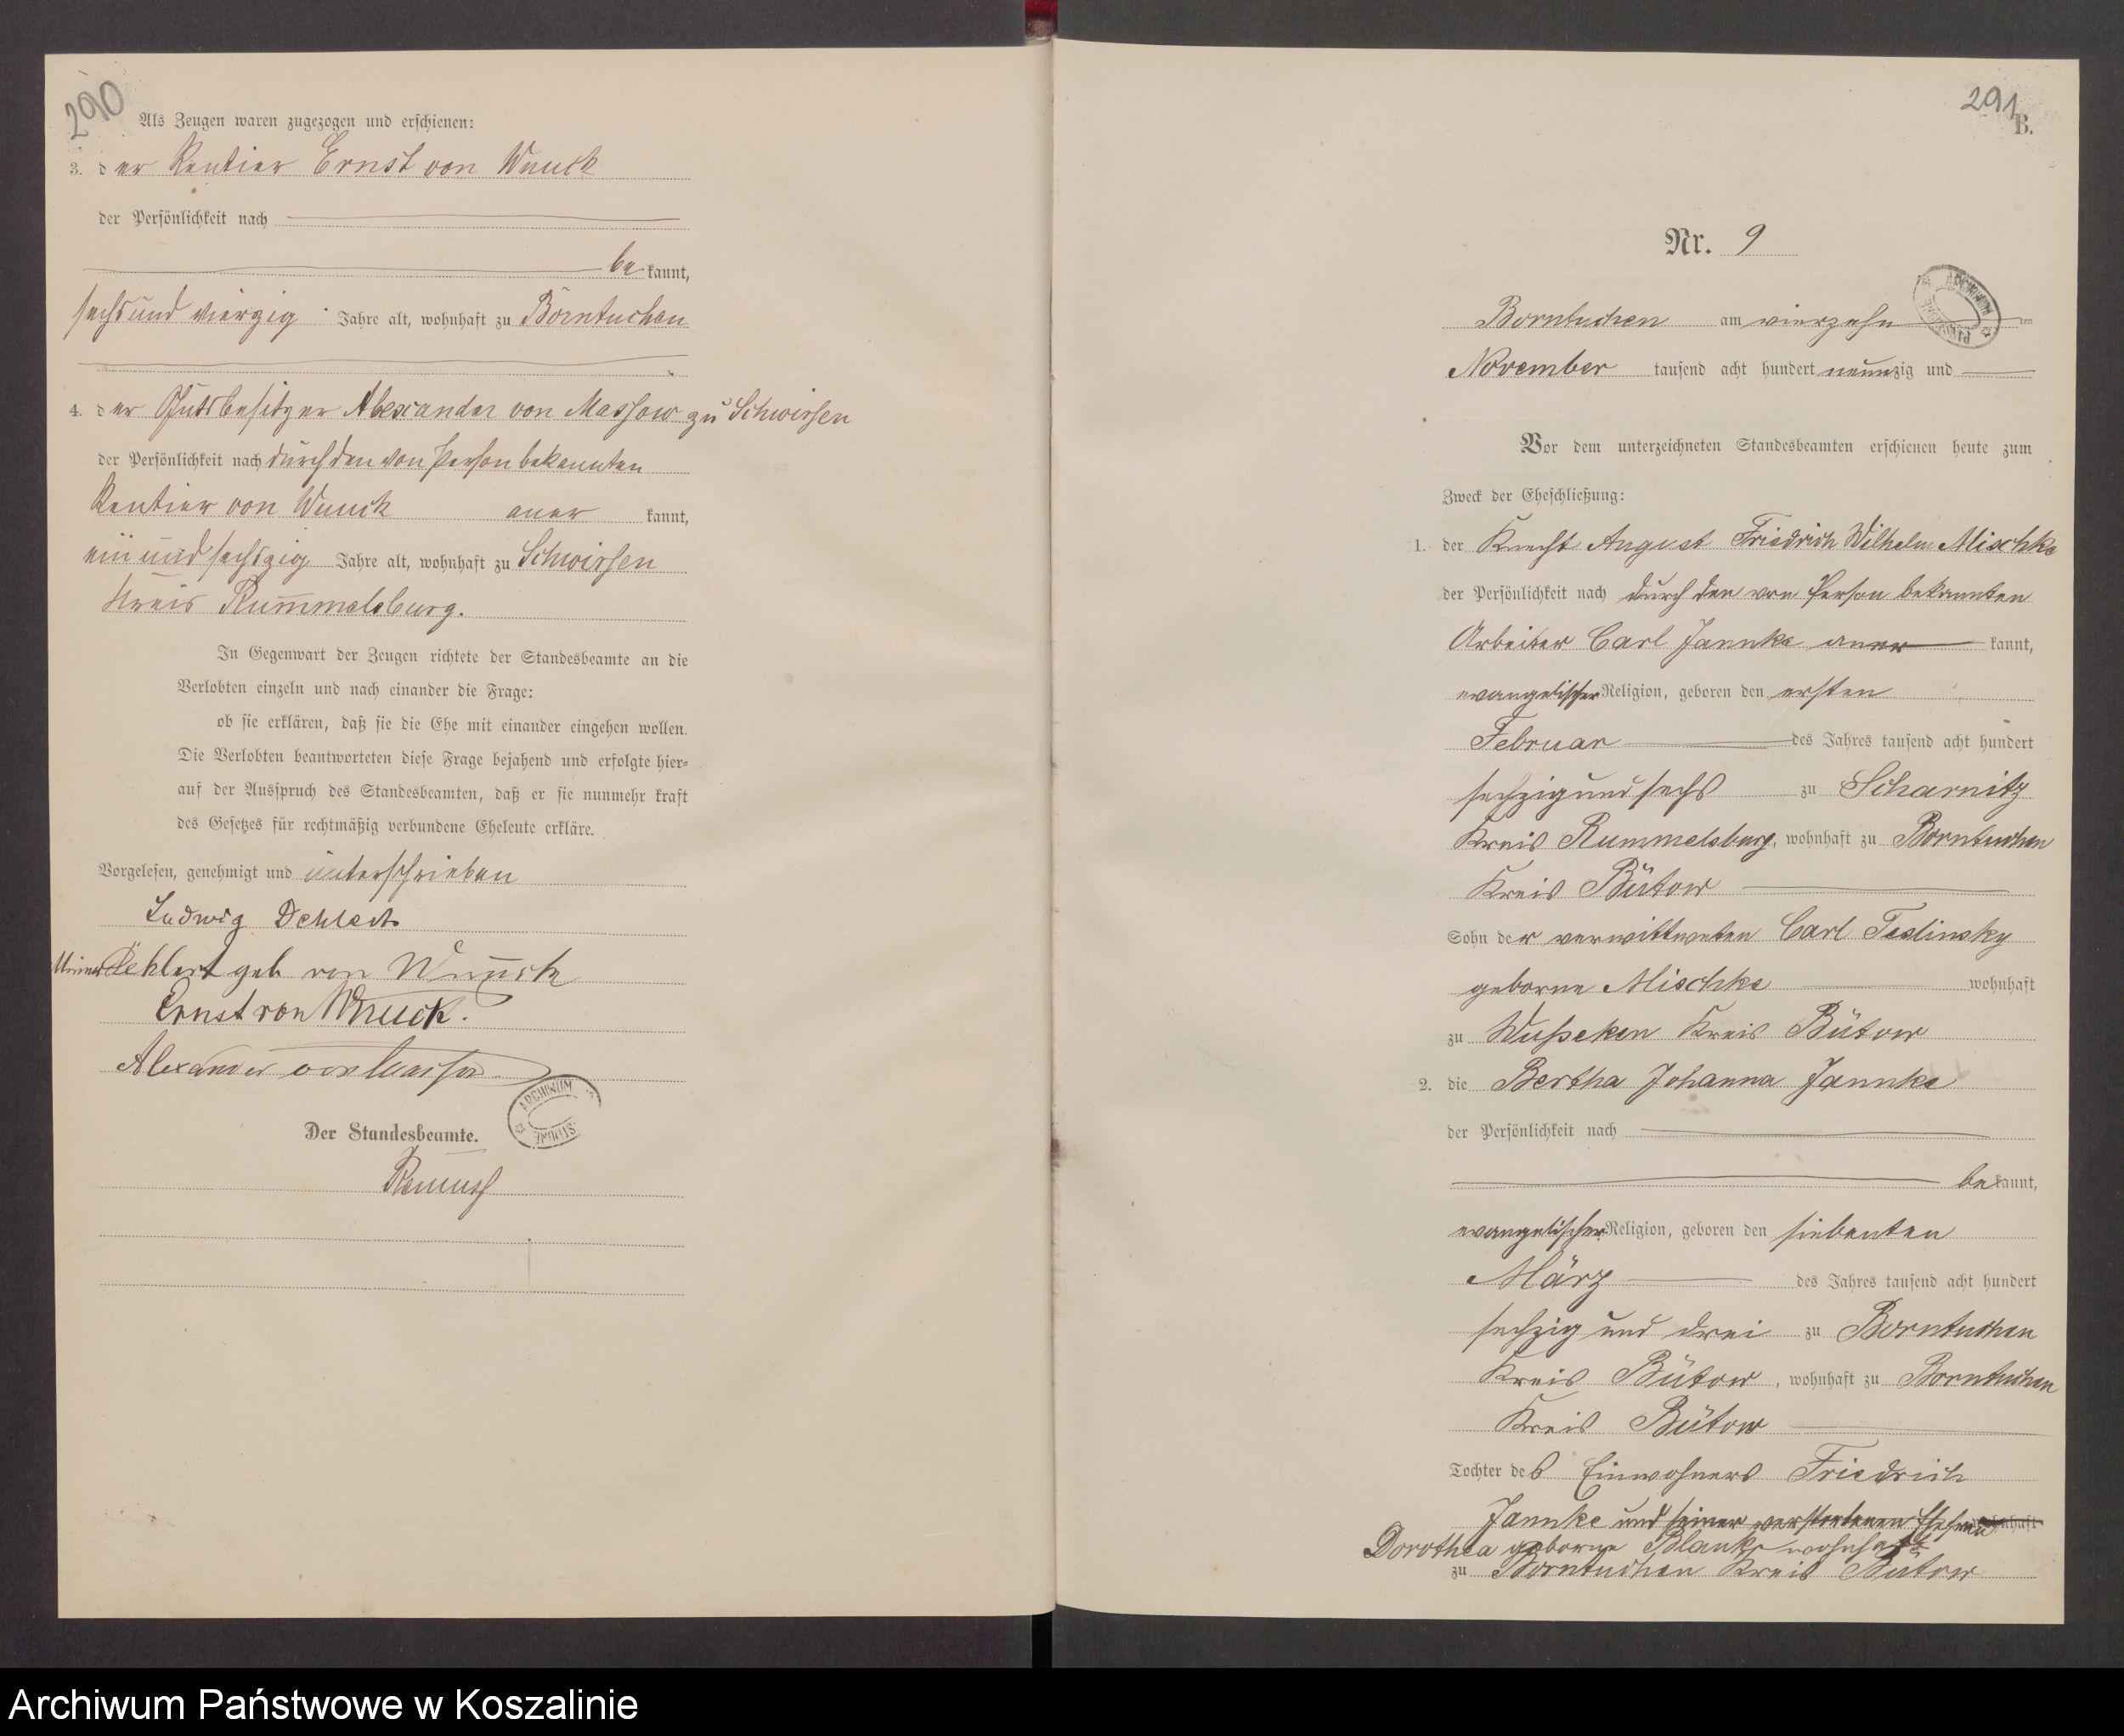 290
Als Zeugen waren zugezogen und erschienen:
3. der Rentier Ernst von Wnuck
der Persönlichkeit nach
be kannt,
sechsundvierzig Jahre alt, wohnhaft zu Borntuchen
4. der Gutsbesitzer Alexander von Massow zu Schwirsen
der Persönlichkeit nach durch den von Person bekannten
Rentier von Wnuck aner kannt,
ein und sechszig Jahre alt, wohnhaft zu Schwirsen
Kreis Rummelsburg.
In Gegenwart der Zeugen richtete der Standesbeamte an die
Verlobten einzeln und nach einander die Frage:
ob sie erklären, daß sie die Ehe mit einander eingehen wollen.
Die Verlobten beantworteten diese Frage bejahend und erfolgte hier-
auf der Ausspruch des Standesbeamten, daß er sie nunmehr kraft
des Gesetzes für rechtmäßig verbundene Eheleute erkläre.
Vorgelesen, genehmigt und unterschrieben
Ludwig Dehlert
Dehlert geb von Wnuck
Ernst von Wnuck.
Alexander von Massow
ARCHIWUM
Der Standesbeamte.
291
B.
Nr. 9
ARCHIWUM
Borntuchen am vierzehn ten
November tausend acht hundert neunzig und
Vor dem unterzeichneten Standesbeamten erschienen heute zum
Zweck der Eheschließung:
1. der Knecht August Friedrich Wilhelm Mischke
der Persönlichkeit nach durch den von Person bekannten
Arbeiter Carl Jannke aner kannt,
evangelischer Religion, geboren den ersten
Februar des Jahres tausend acht hundert
sechzig und sechs zu Scharnitz
Kreis Rummelsburg, wohnhaft zu Borntuchen
Kreis Bütow
Sohn der verwittweten Carl Teslinsky
geborne Mischke wohnhaft
zu Wusseken Kreis Bütow
2. die Bertha Johanna Jannke
der Persönlichkeit nach
be kannt,
evangelischer Religion, geboren den siebenten
März des Jahres tausend acht hundert
sechzig und drei zu Borntuchen
Kreis Bütow, wohnhaft zu Borntuchen
Kreis Bütow
Tochter des Einwohners Friedrich
Jannke und seiner verstorbenen Ehefrau wohnhaft
Dorothea geborne Blank wohnhaft
zu Borntuchen Kreis Bütow
Archiwum Państwowe w Koszalinie